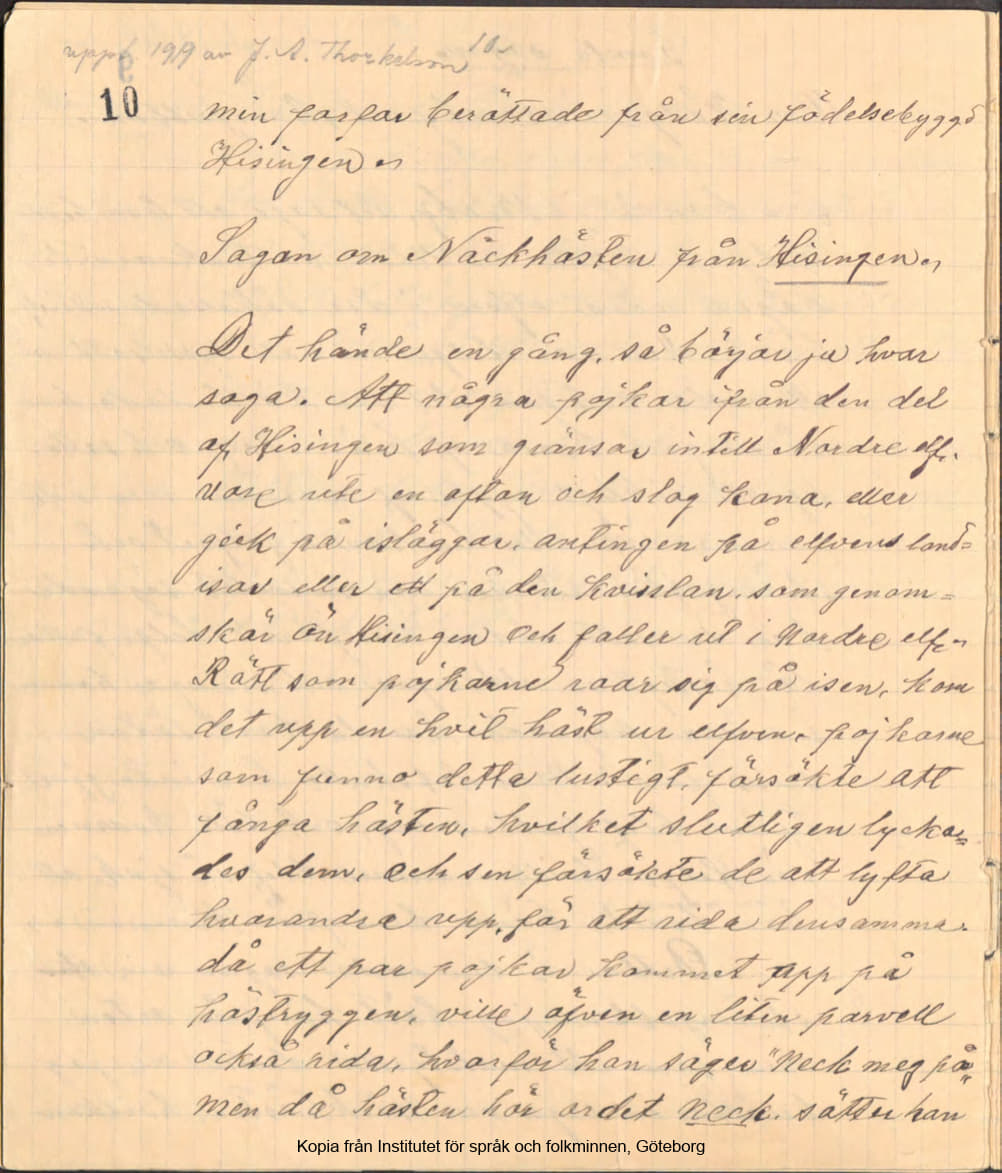 uppt 1919 av J. A. Thorkelson 10
10
min farfar berättade från sin födelsebygd
Hisingen
Sagan om Näckhästen från Hisingen
Det hände en gång, så börjar ju hvar
saga. Att några pojkar ifrån den del
af Hisingen som gränsar intill Nordre elf.
vore ute en afton och slog kana, eller
gick på isläggar, antingen på elfvens land=
isar eller ett på den kvisslan, som genom=
skär ön Hisingen och faller ut i Nordre elf.
Rätt som pojkarne roar sig på isen, kom
det upp en hvit häst ur elfven, pojkarne
som funno detta lustigt, försökte att
fånga hästen, hvilket slutligen lycka=
des dem, och sen försökte de att lyfta
hvarandra upp, för att rida densamma.
då ett par pojkar kommet upp på
hästryggen, ville äfven en liten parvell
också rida, hvarför han säger "Neck meg på"
men då hästen hör ordet neck, sätter han
Kopia från Institutet för språk och folkminnen, Göteborg